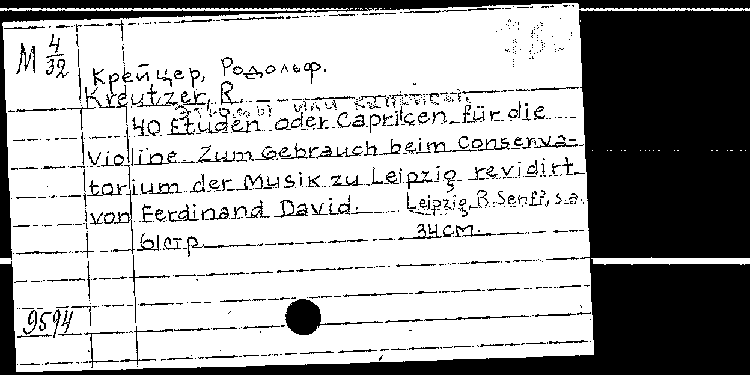 М 4/32
Крейцер, Родольф.
Kreutzer, R.
или
40 Etüden oder Capricen für die
Violine. Zum Gebrauch beim Conserva-
torium der Musik zu Leipzig revidirt
von Ferdinand David. Leipzig, B. Senff, s.a.
61стр. 34см.
9594